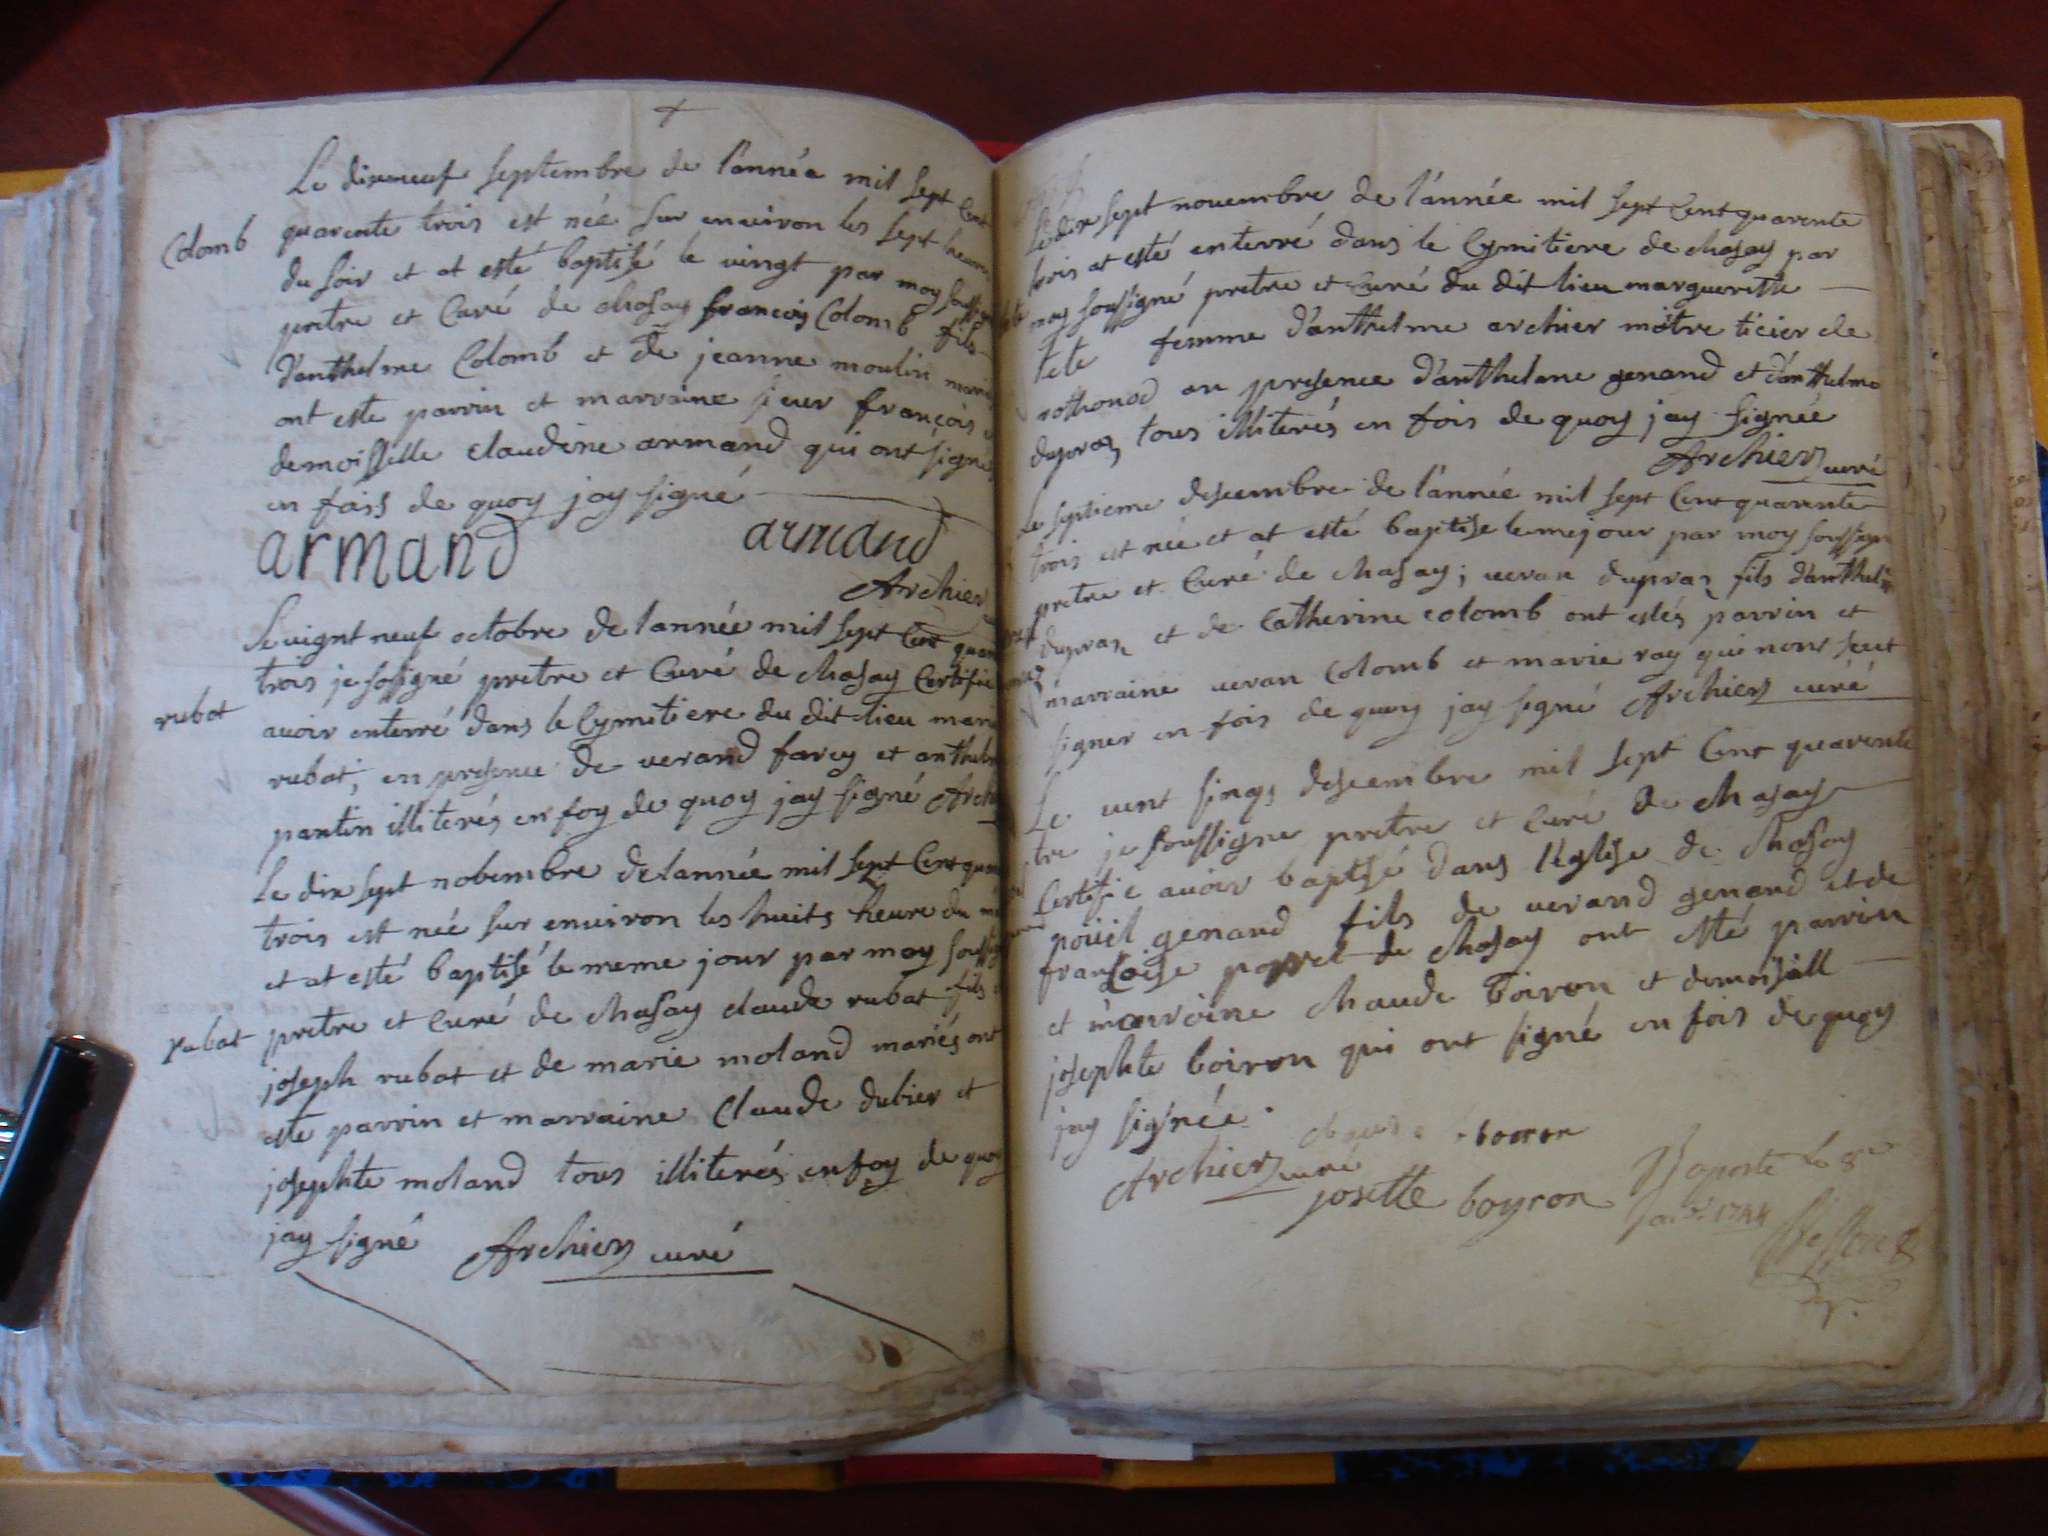 Le dixneuf septembre de l'année mil sept Cent
Colomb quarente trois est née sur environ les sept heures
du soir et at esté baptisé le vingt par moy soussigné
pretre et Curé de Chasay françois Colomb fils
d'anthelme Colomb et de jeanne moulin mariés
ont esté parrin et marraine sieur françois et
demoisselle claudine armand qui ont signé
en fois de quoy jay signé
armand armand
Archier
Le vignt neuf octobre de lannée mil sept Cent quarente
trois je sosigné pretre et Curé de Chasay Certifie
rubat avoir enterré dans le Cymitiere du dit lieu
rubat, en presence de verand farcy et anthelme
pantin illiterés en foy de quoy jay signé Archier
Le dix sept nobembre de lannée mil sept Cent quarente
trois est née sur environ les huits heure du
et at esté baptisé le meme jour par moy soussigné
rubat pretre et Curé de Chasay claude rubat fils de
joseph rubat et de marie moland mariés ont
esté parrin et marraine Claude dubier et
josephte moland tous illiterés en foy de quoy
jay signé Archier curé
Le dix sept nouembre de l'année mil sept Cent quarente
trois at esté enterré dans le Cymitiere de Chasay par
moy soussigné pretre et Curé du dit lieu marguerette
tete femme d'anthelme archier metre ticier de
rothonod en presence d'anthelme genand et d'anthelme
dupraz tous illiterés en fois de quoy jay signée
Archier curé
Le septieme descembre de l'année mil sept Cent quarente
trois est née et at esté baptise le mejour par moy soussigné
pretre et Curé de Chasay; veran dupraz fils d'anthelme
dupraz et de Catherine colomb ont estés parrin et
marraine veran Colomb et marie ray qui nont seut
signer en fois de quoy jay signé Archier curé
Le vent sinq descembre mil sept Cent quarente
je soussigne pretre et Curé de Chasay
Certifie avoir baptisé dans l'eglise de Chasay
noüel genand fils de verand genand et de
fransoise de Chasay ont esté parrin
et marroine Chaude boiron et demoisell
josephte boiron qui ont signé en fois de quoy
jay signée.
boiron
Archier curé
josette boyron
aporté le 8e
janv. 1744